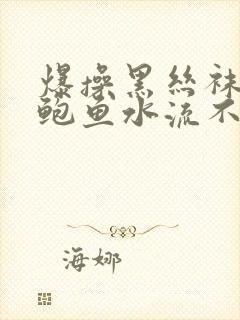 爆操黑絲袜
鲍鱼水流不
海娜